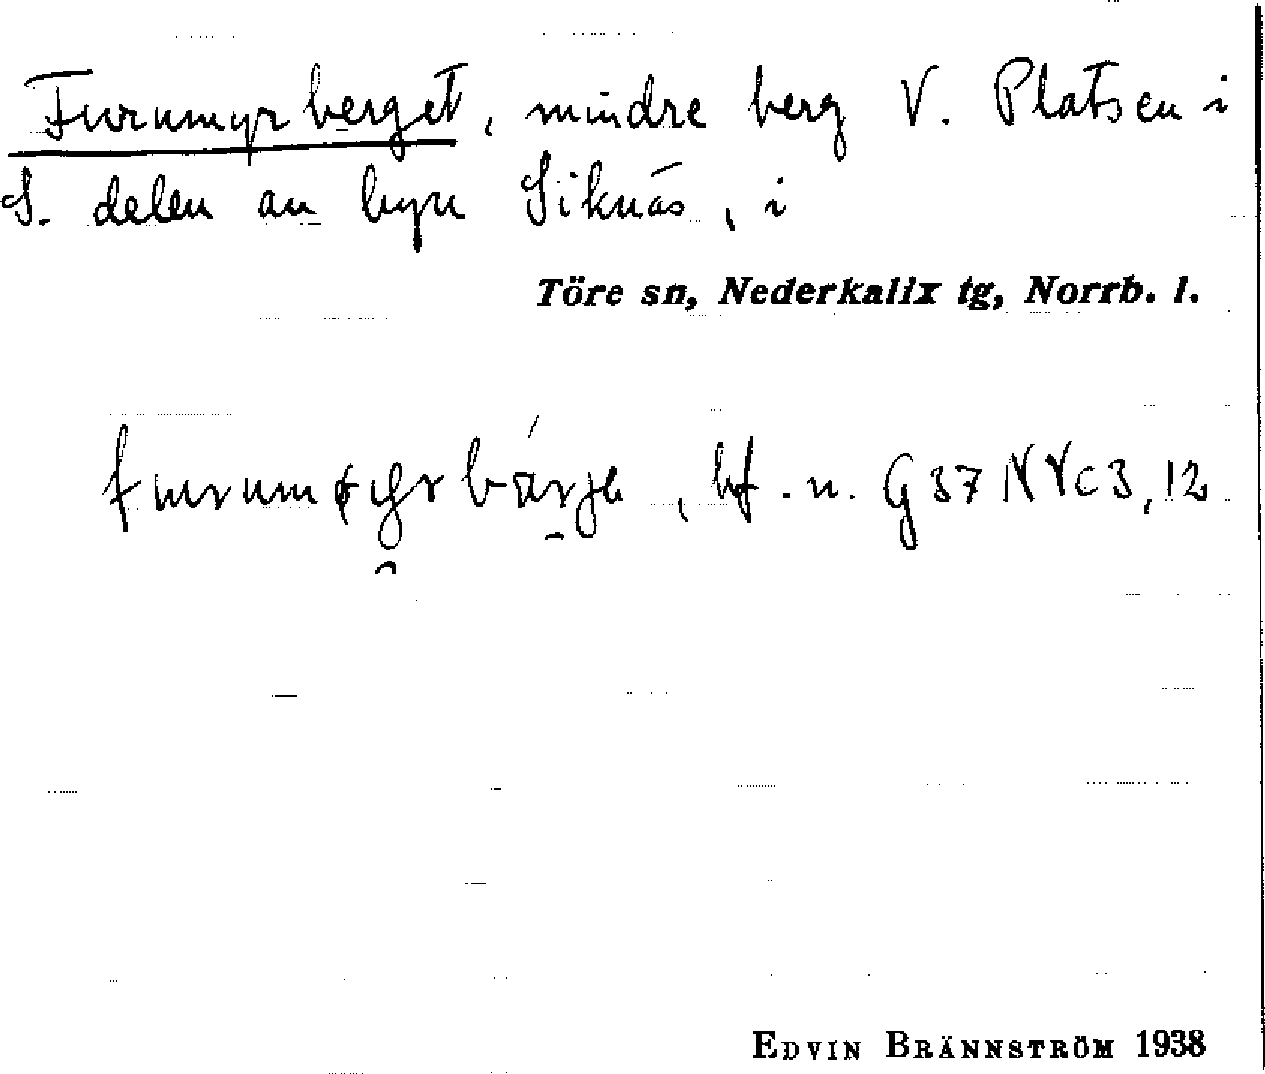 Furumyrberget, mindre berg V. Platsen i
S. delen av byn Siknäs, i
Töre sn, Nederkalix tg, Norrb. l.
, bf. n. G 37 NVc3, 12
EDVIN BRÄNNSTRÖM 1938